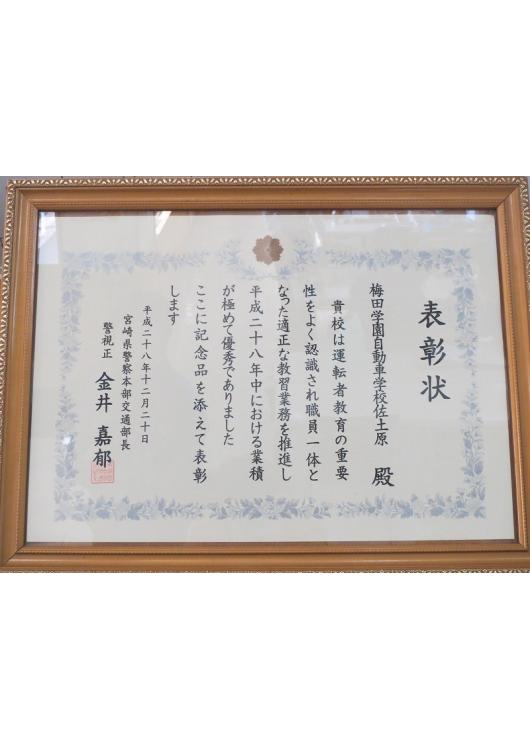 表彰状
梅田学園自動車学校佐土原 殿
貴校は運転者教育の重要
性をよく認識され職員一体と
なった適正な教習業務を推進し
平成二十八年中における業積
が極めて優秀でありました
ここに記念品を添えて表彰
します
平成二十八年十二月二十日
宮崎県警察本部交通部長
警視正 金井嘉郁